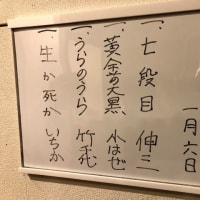 一月六日
一、七段目 伸三
一、黄金の大黒 小はぜ
一、うらのうら 竹千代
一、生か死か いちか